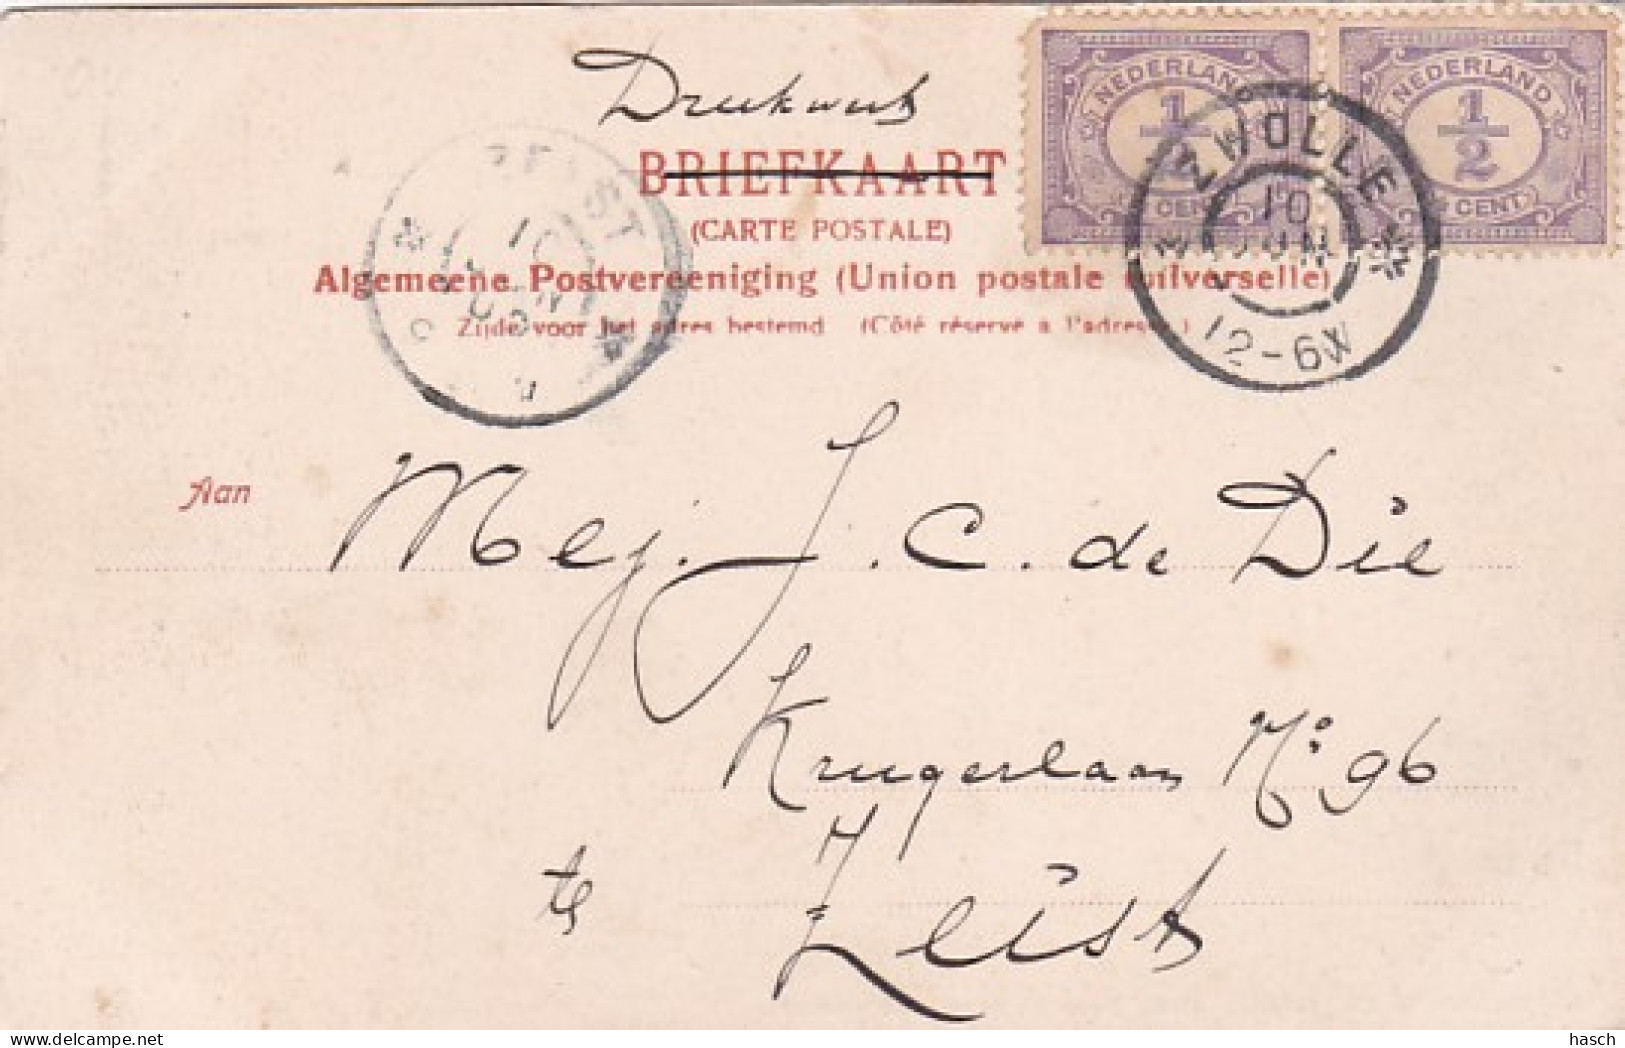 Drukwerk
BRIEFKAART
(CARTE POSTALE)
Algemeene Postvereeniging (Union postale universelle)
Zijde voor het adres bestemd (Côté réservé à l'adresse)
NEDERLAND
1/2
CENT
NEDERLAND
1/2
CENT
ZWOLLE
10 JUN
12-6N
ZEIST
10 JUN
Aan
Mej. J. C. de Die
Krugerlaan No 96
te
Zeist
hasch